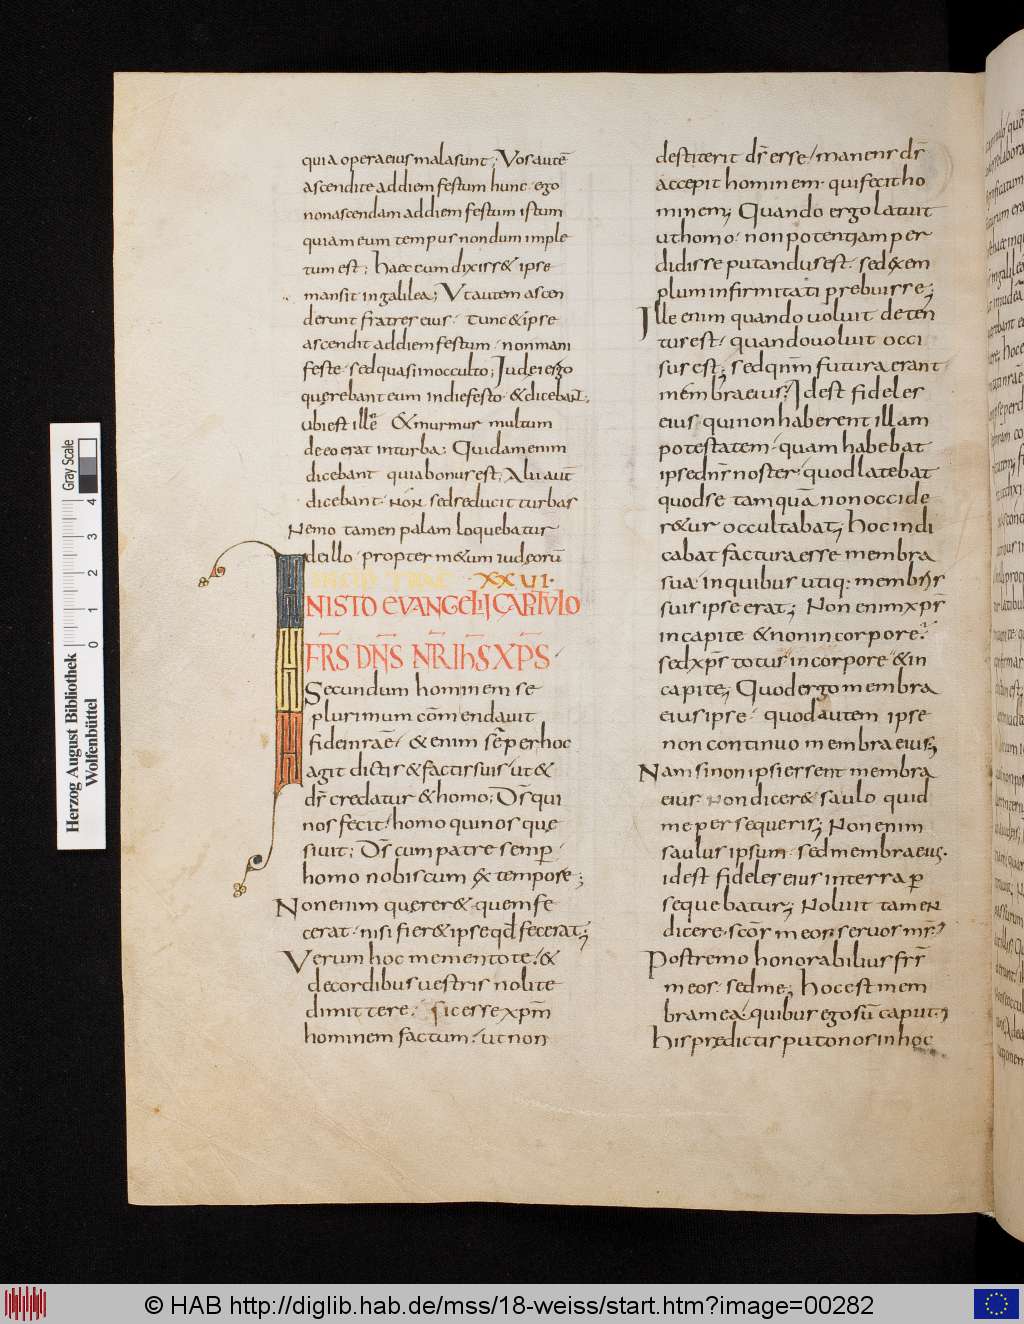 quia opera eius mala sunt; Vos autē
ascendite ad diem festum hunc· ego
non ascendam ad diem festum istum
quia meum tempus nondum imple
tum est; haec cum dixiss& ipse
mansit in galilea; Vt autem ascen
derunt fratres eius· tunc & ipse
ascendit ad diem festum· non mani
feste· sed quasi in occulto; Iudei ergo
querebant eum in die festo· & dicebant·;
ubi est ille & murmur multum
de eo erat in turba; Quidam enim
dicebant quia bonus est; Alii aut̄
dicebant· Non· sed seducit turbas
Nemo tamen palam loquebatur
de illo· propter m&um iudeorū
XXVI·
IN ISTO EVANGELII CAPITVLO
FRS DNS NR IHS XPS
Secundum hominem se
plurimum cōmendauit
fidei nrae· & enim sēper hoc
agit dictis & factis suis· ut &
ds̄ credatur & homo; Ds̄ qui
nos fecit· homo qui nos que
siuit; Ds̄ cum patre semp̄·
homo nobiscum ex tempore;
Non enim querer& quem fe
cerat· nisi fier& ipse qd̄ fecerat;
Verum hoc mementote· &
de cordibus uestris nolite
dimittere· sic esse xpm̄
hominem factum· ut non
destiterit ds̄ esse· manens ds̄
accepit hominem· qui fecit ho
minem; Quando ergo latuit
ut homo· non potentiam per
didisse putandus est· sed exem
plum infirmitati prebuisse;
Ille enim quando uoluit deten
tus est· quando uoluit occi
sus est; sed qnm̄ futura erant
membra eius· Id est fideles
eius qui non haberent illam
potestatem· quam habebat
ipse dns̄ noster· quod latebat
quod se tamquā non occide
r&ur occultabat; hoc indi
cabat factura esse membra
sua· in quibus utiq: membris
suis ipse erat; Non enim xpr̄
in capite & non in corpore·
sed xps̄ totus in corpore & in
capite; Quod ergo membra
eius ipse· quod autem ipse
non continuo membra eius;
Nam si non ipsi essent membra
eius· non dicer& saulo quid
me persequeris; Non enim
saulus ipsum· sed membra eius·
id est fideles eius in terra p̄
sequebatur; Noluit tamen
dicere· scōs meos· seruos meos·
Postremo honorabilius frs̄
meos· sed me; hoc est mem
bra mea· quibus ego sū caput·
his predictis puto nos in hoc
Herzog August Bibliothek
Wolfenbüttel
0 1 2 3 4
Gray Scale
© HAB http://diglib.hab.de/mss/18-weiss/start.htm?image=00282